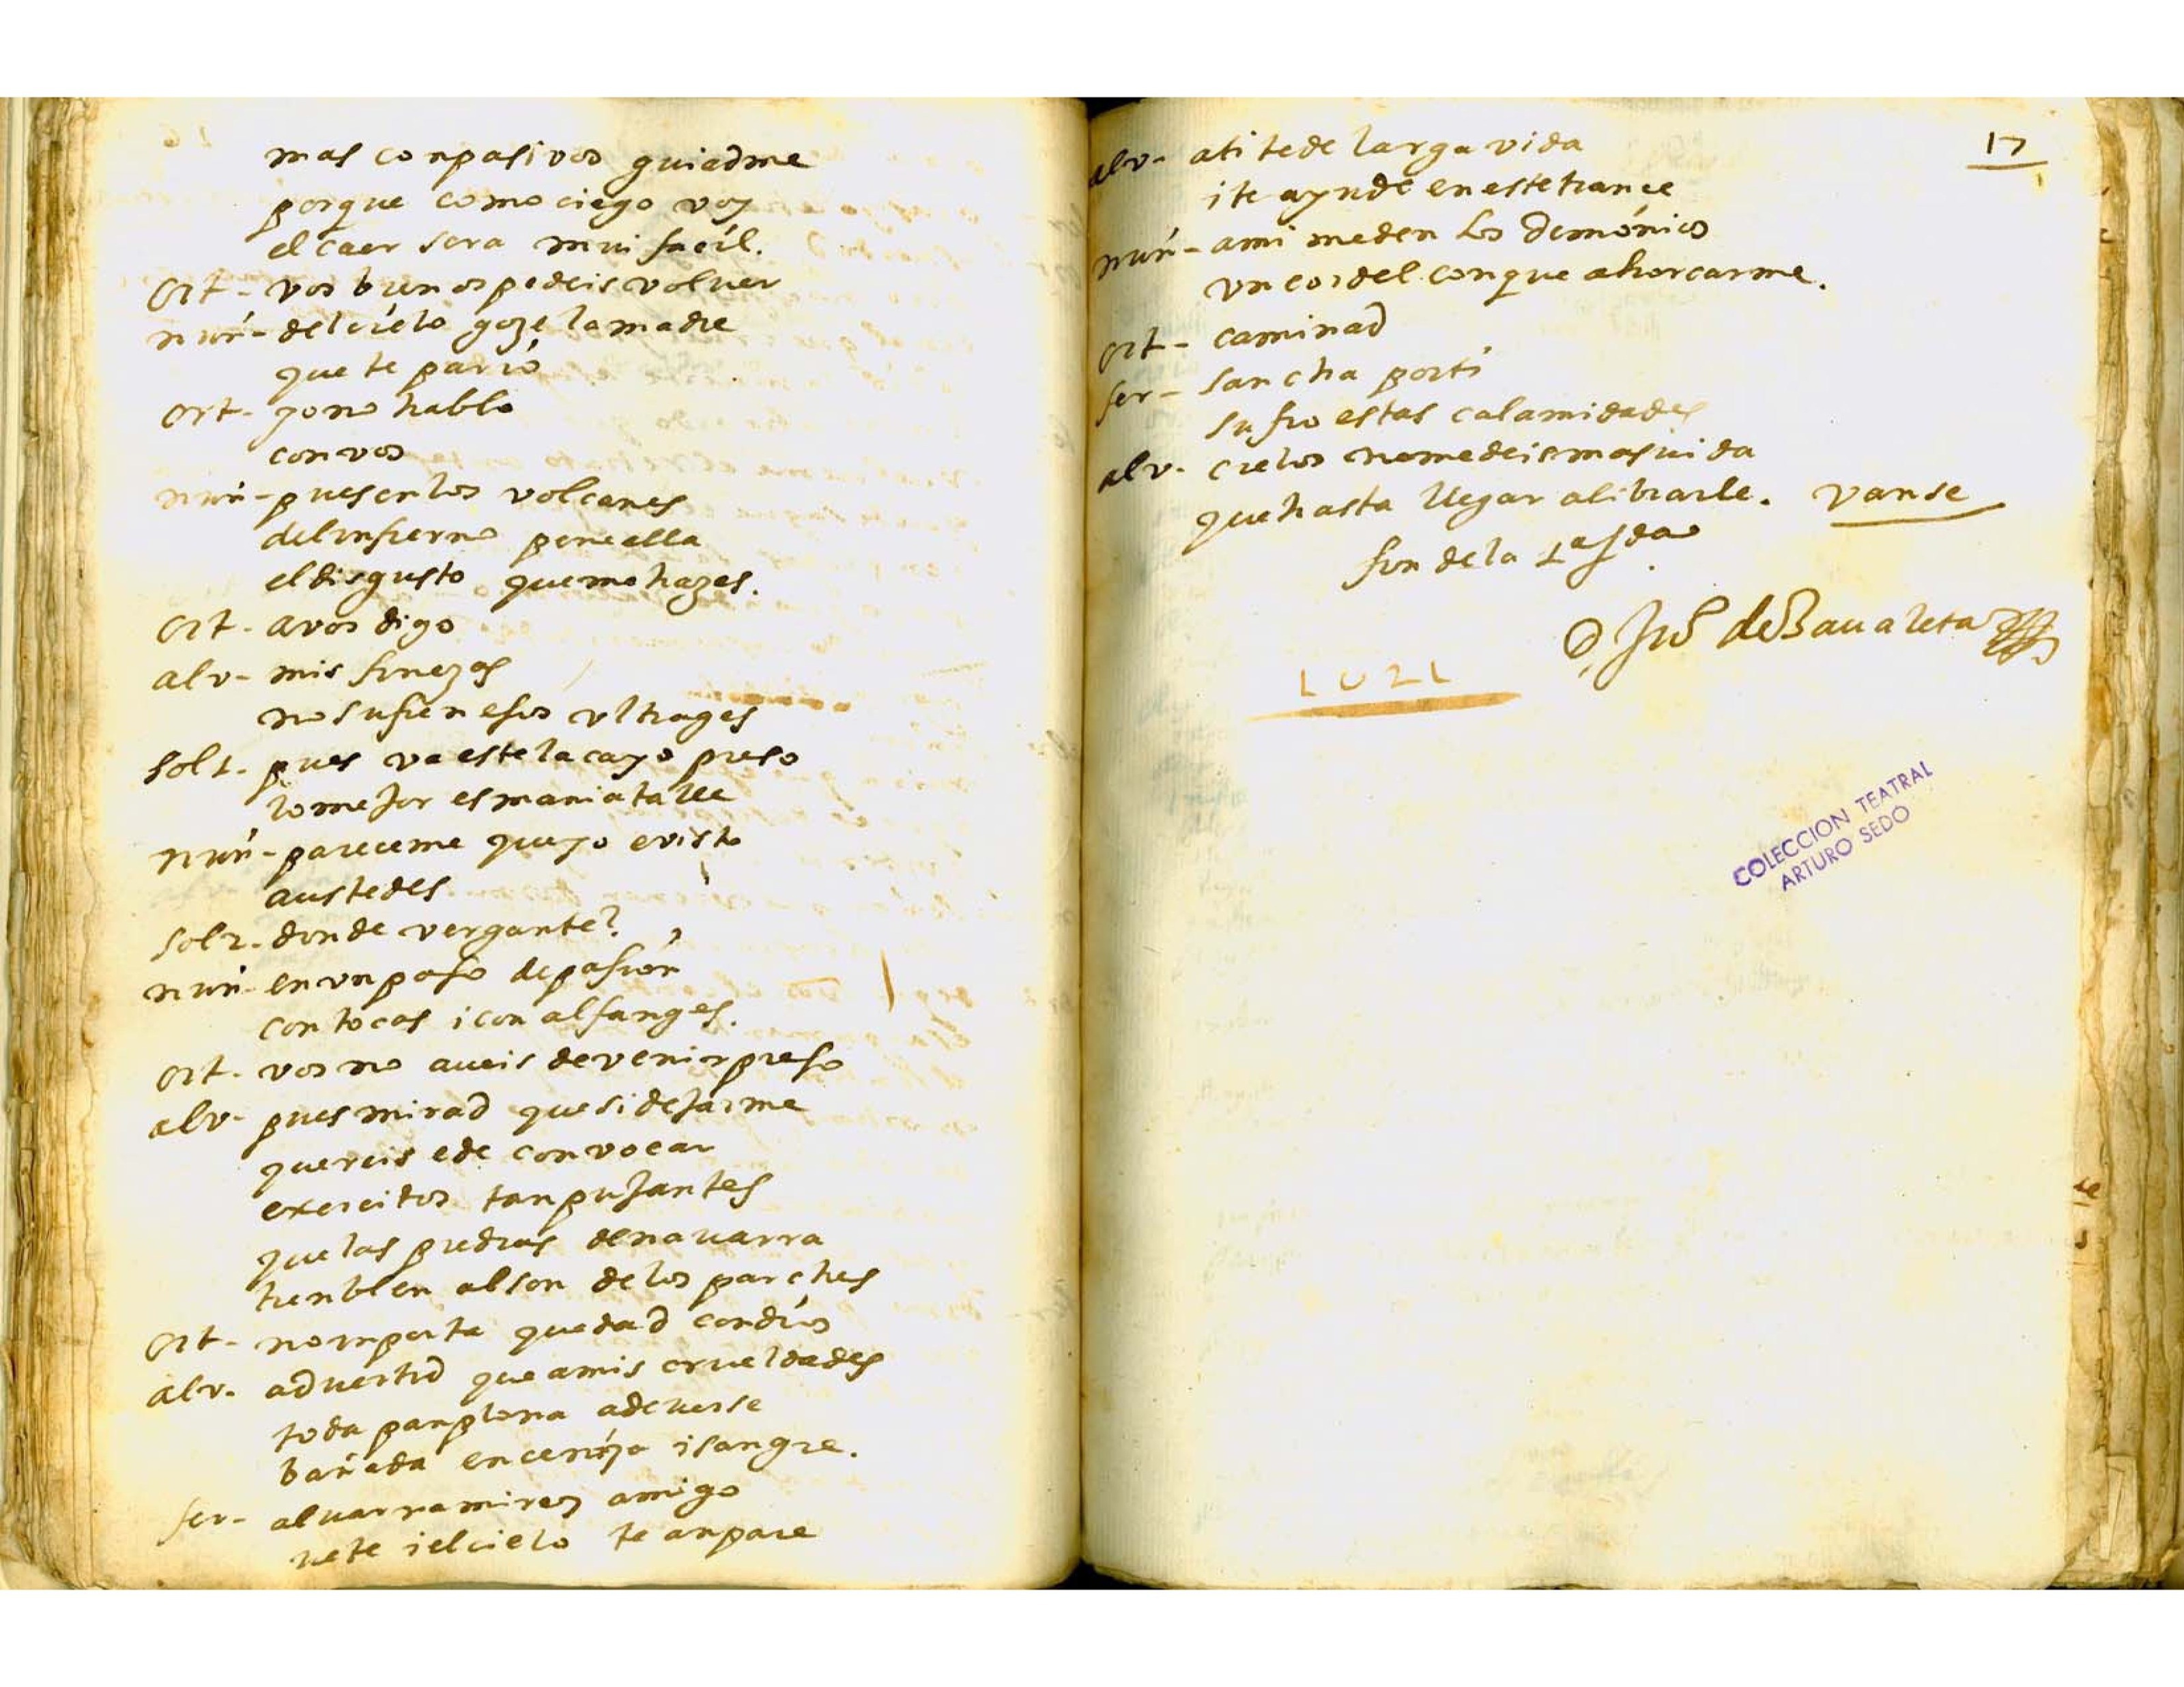 mas conpasivos guiadme
porque como ciego voy
el caer sera mui facil.
Ort- vos bien os podeis voluer
nuñ- del cielo goze la madre
que te parió
Ort- yo no hablo
con vos
nuñ- pues en los volcanes
del infierno pene ella
el disgusto que me hazes.
Ort- a vos digo
alv- mis finezas
no sufren esos vltrages
Sol 1- pues va este lacayo preso
lo mejor es maniatalle
nuñ- pareceme que yo e visto
a ustedes
Sol 2- donde vergante?
nuñ- en vn paso de pasion
con tocas i con alfanges.
Ort- vos no aueis de venir preso
alv- pues mirad que si dejarme
quereis e de convocar
exercitos tan pujantes
que las piedras de nauarra
tienblen al son de los parches
Ort- no inporta quedad con dios
alv- aduertid que a mis crueldades
toda panplona a de uerse
bañada en ceniza i sangre.
fer- aluar ramirez amigo
uete i el cielo te anpare
alv- a ti te de larga vida
i te ayude en este trance
nuñ- a mi me den los demónios
vn cordel con que ahorcarme.
Ort- caminad
fer- sancha por ti
sufro estas calamidades
alv- cielos no me deis mas uida
que hasta llegar a librarle. vanse
fin de la 1ª Jda
17
COLECCION TEATRAL
ARTURO SEDO